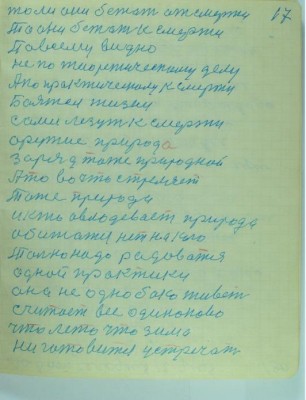 17
толи они бежат от смерти
То они бежат к смерти
По всему видно
не по теоритическому делу
А по практическому к смерти
Боятся жизни
сами лезут к смерти
оружие природа
заряд тоже природной
А то во что стреляет
Тоже природа
и кто овлодевает природа
обижатся нет на кого
Только надо радоватся
одной практики
она не однобоко живет
считает все одинаково
что лето что зима
ни готовится устречат